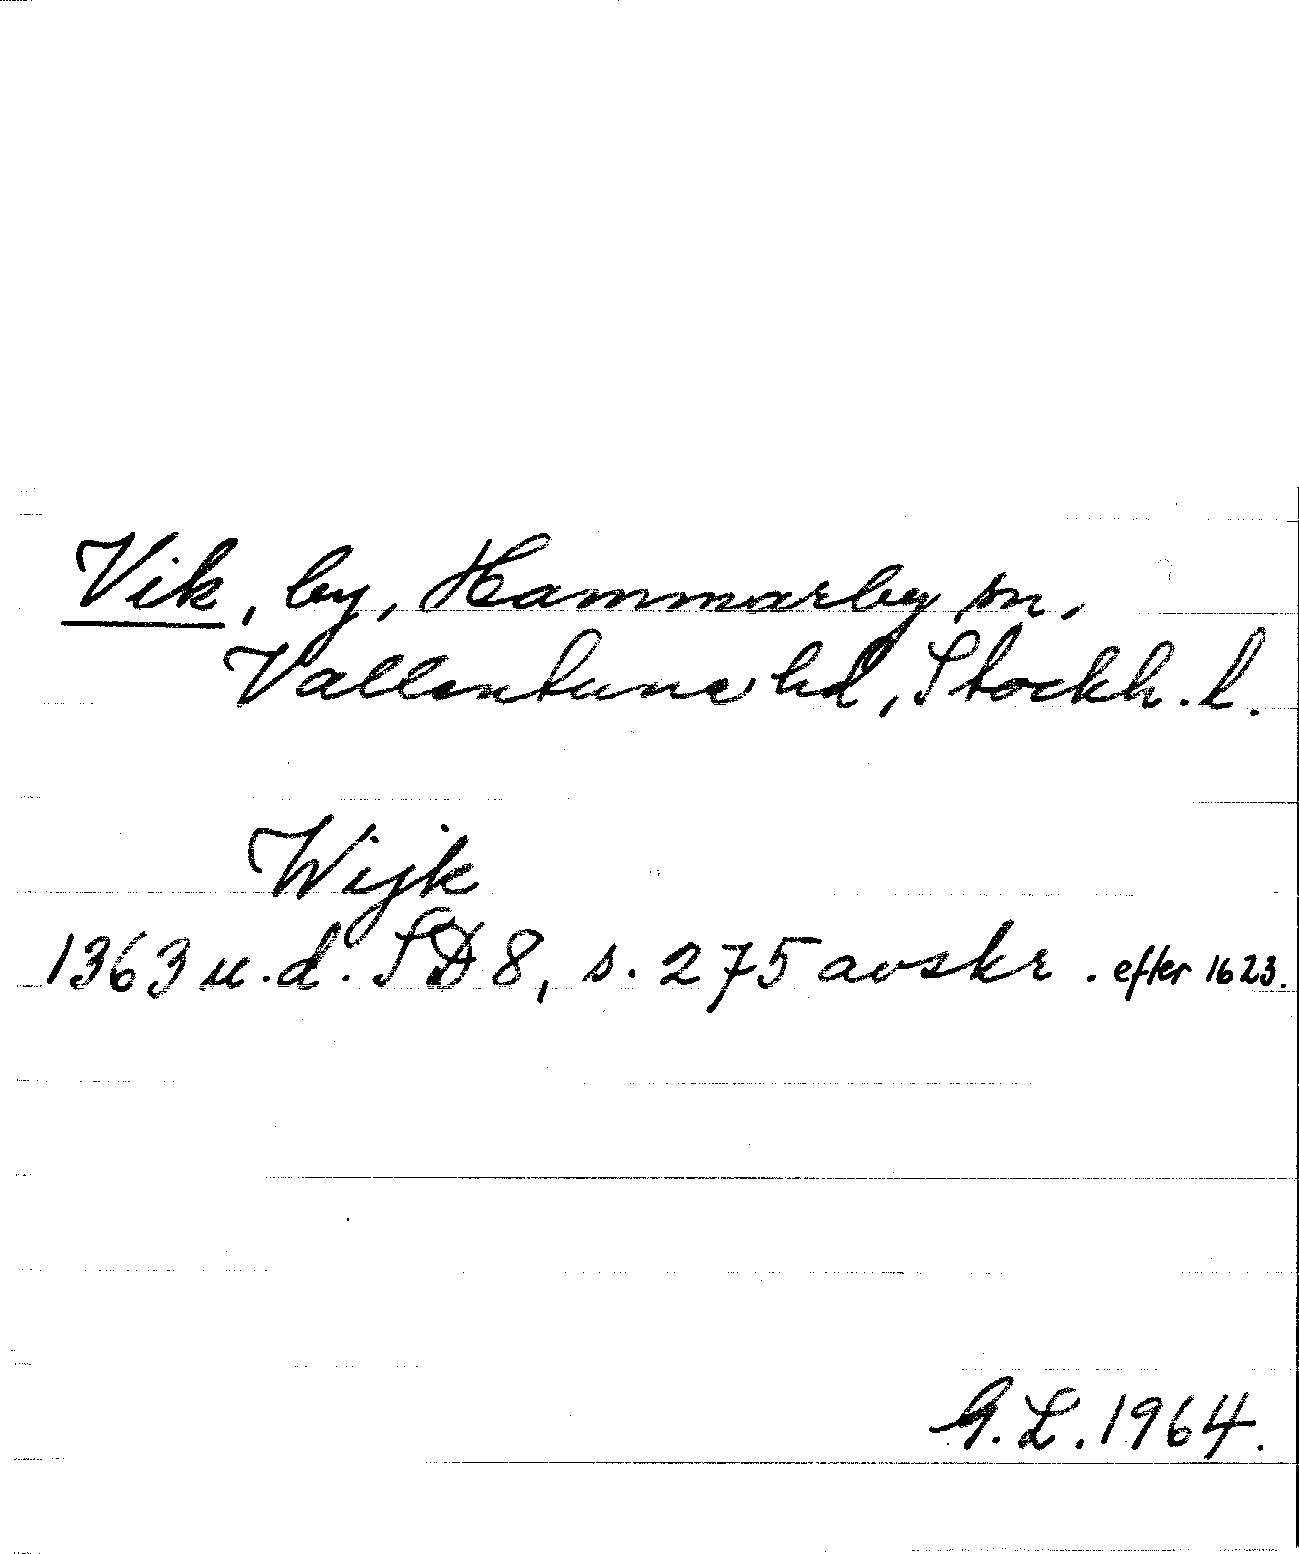 Vik, by, Hammarby sn,
Vallentuna hd, Stockh. l.
Wijk
1363 u.d. SD 8, s. 275 avskr. efter 1623.
G.L. 1964.